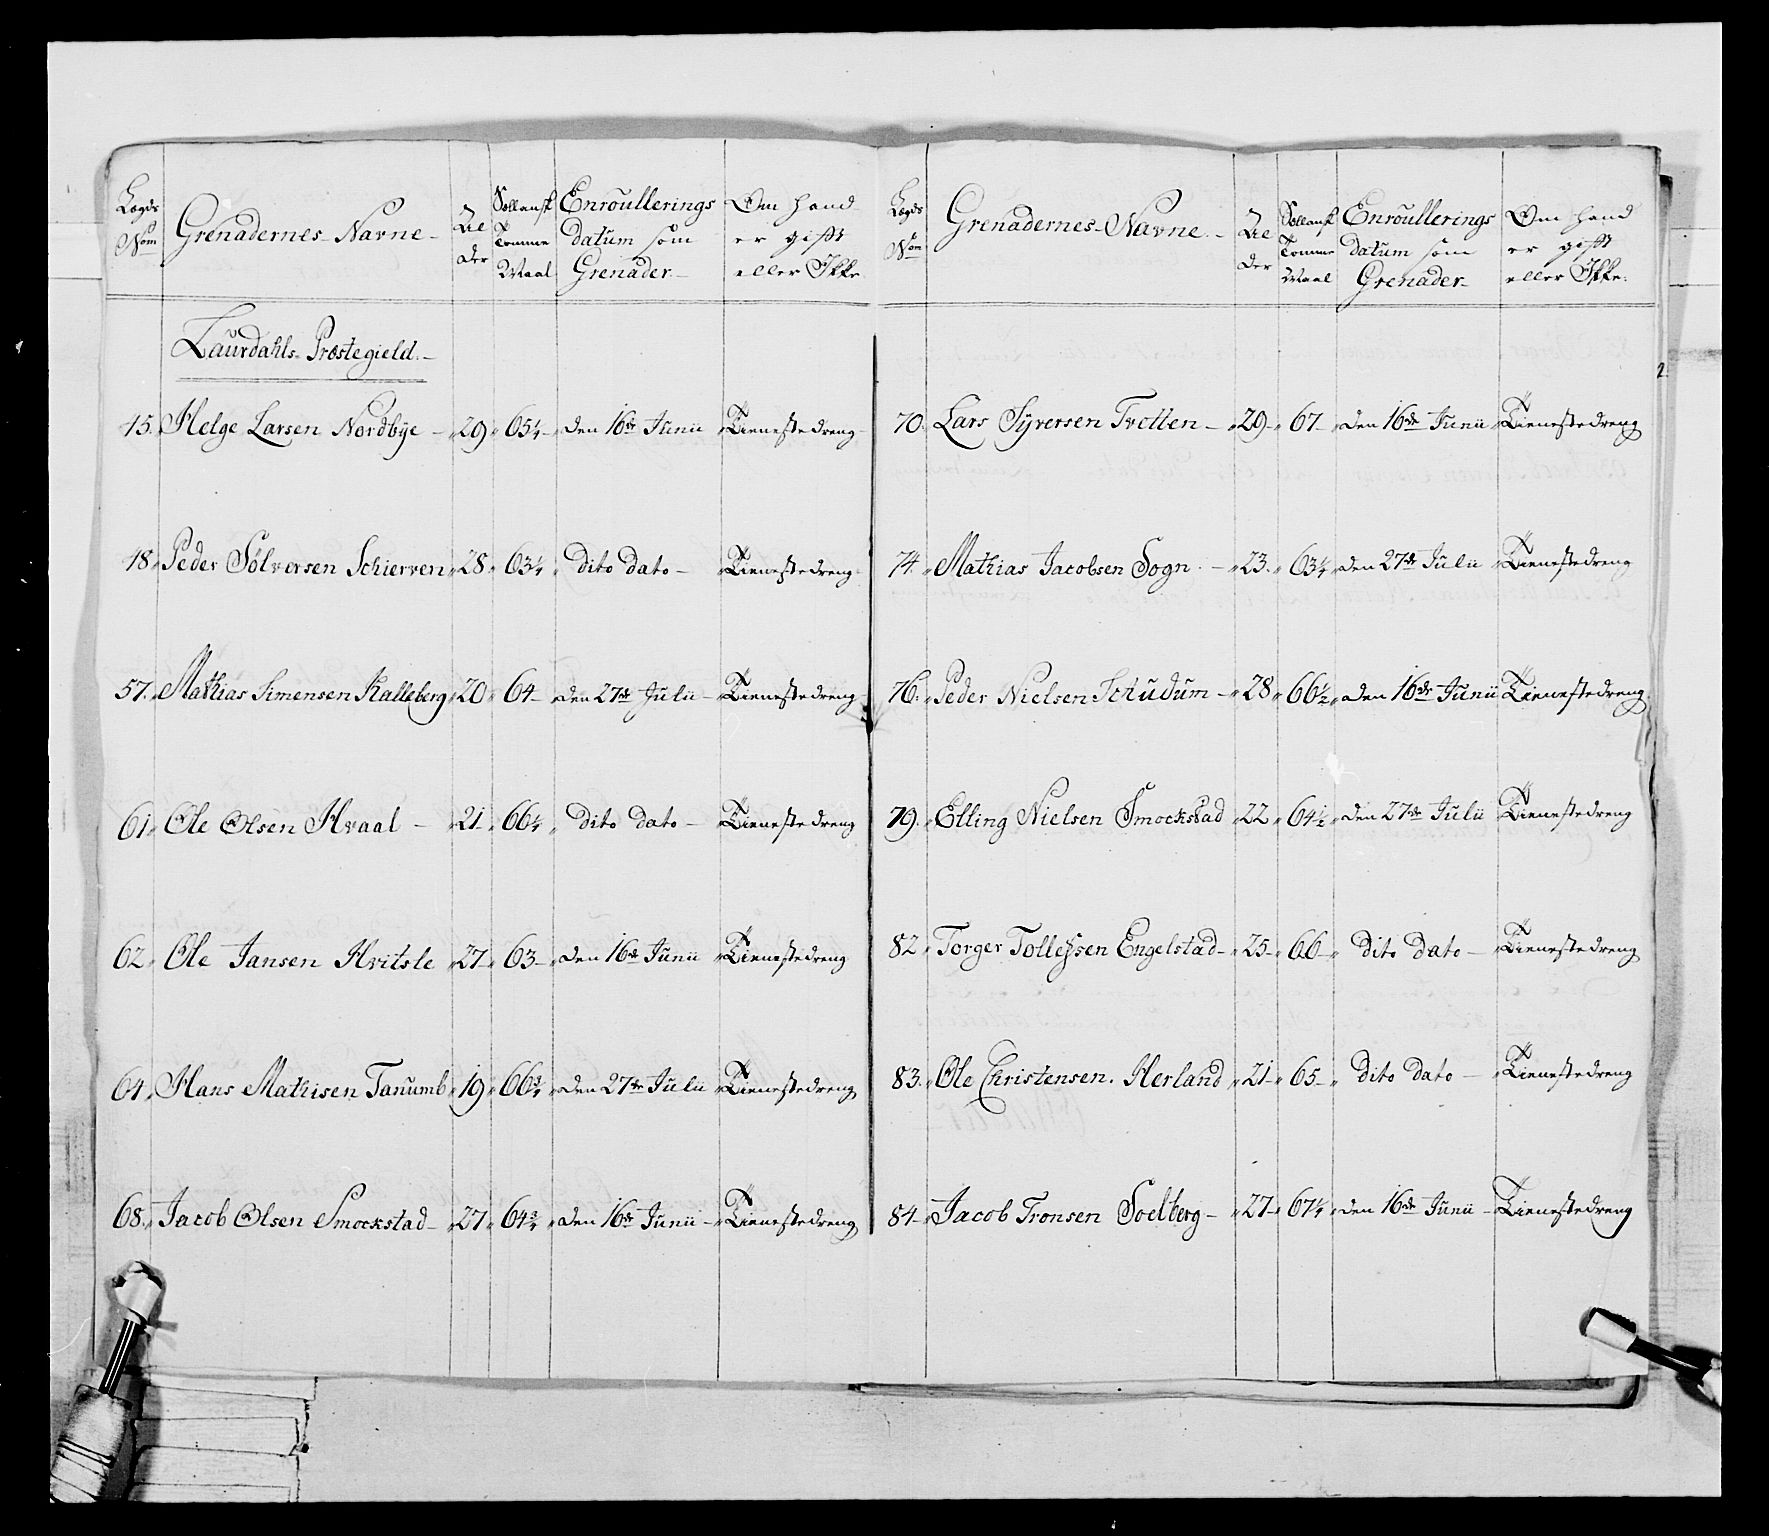 Lægds Nom | Grenadernes Navne | Al der | Sællansk Tomme Maal | Enroullerings datum som Grenader | Om hand er gift eller Ikke
Laurdahls Præstegield.
45. Helge Larsen Nordbye 29 65¼ den 16de Junii Tienestedreng
48. Peder Sølversen Schierven 28 63¼ dito dato Tienestedreng
57. Mathias Simensen Kalleberg 20 64 den 27de Julii Tienestedreng
61. Ole Olsen Hvaal 21 66¼ dito dato Tienestedreng
62. Ole Jansen Hvitsle 27 63 den 16de Junii Tienestedreng
64. Hans Mathisen Tanumb 19 66¾ den 27de Julii Tienestedreng
68. Jacob Olsen Smockstad 27 64¾ den 16de Junii Tienestedreng
Lægds Nom | Grenadernes Navne | Al der | Sællansk Tomme Maal | Enroullerings datum som Grenader | Om hand er gift eller Ikke.
2.
70. Lars Syversen Tvetten 29 67 den 16de Junii Tienestedreng
74. Mathias Jacobsen Sogn 23 63¼ den 27de Julii Tienestedreng
76. Peder Nielsen Schudum 28 66½ den 16de Junii Tienestedreng
79. Elling Nielsen Smockstad 22 64½ den 27de Julii Tienestedreng
82. Torger Tollefsen Engelstad 25 66 dito dato Tienestedreng
83. Ole Christensen Herland 21 65 dito dato Tienestedreng
84. Jacob Tronsen Soelberg 27 67¼ den 16de Junii Tienestedreng